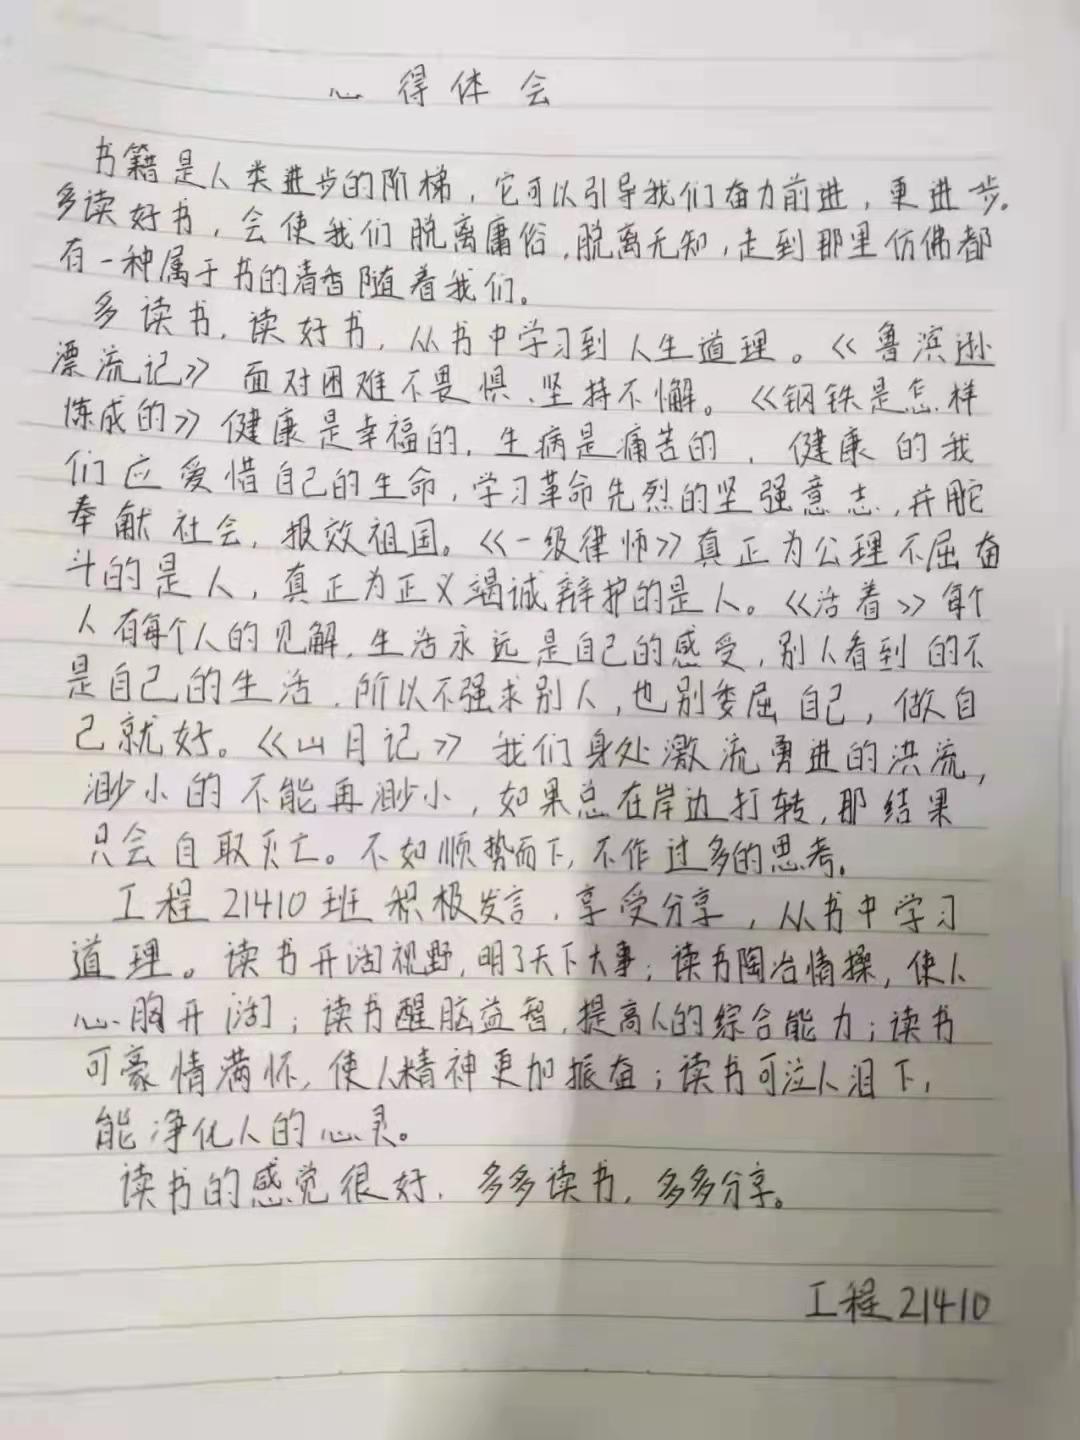 心得体会
书籍是人类进步的阶梯，它可以引导我们奋力前进，更进步。
多读好书，会使我们脱离庸俗，脱离无知，走到那里仿佛都
有一种属于书的清香随着我们。
多读书，读好书，从书中学习到人生道理。《鲁滨逊
漂流记》面对困难不畏惧、坚持不懈。《钢铁是怎样
炼成的》健康是幸福的，生病是痛苦的，健康的我
们应爱惜自己的生命，学习革命先烈的坚强意志，并能
奉献社会，报效祖国。《一级律师》真正为公理不屈奋
斗的是人，真正为正义竭诚辩护的是人。《活着》每个
人有每个人的见解，生活永远是自己的感受，别人看到的不
是自己的生活，所以不强求别人，也别委屈自己，做自
己就好。《山月记》我们身处激流勇进的洪流，
渺小的不能再渺小，如果总在岸边打转，那结果
只会自取灭亡。不如顺势而下，不作过多的思考。
工程21410班积极发言，享受分享，从书中学习
道理。读书开阔视野，明了天下大事；读书陶冶情操，使人
心胸开阔；读书醒脑益智，提高人的综合能力；读书
可豪情满怀，使人精神更加振奋；读书可泣人泪下，
能净化人的心灵。
读书的感觉很好，多多读书，多多分享。
工程21410